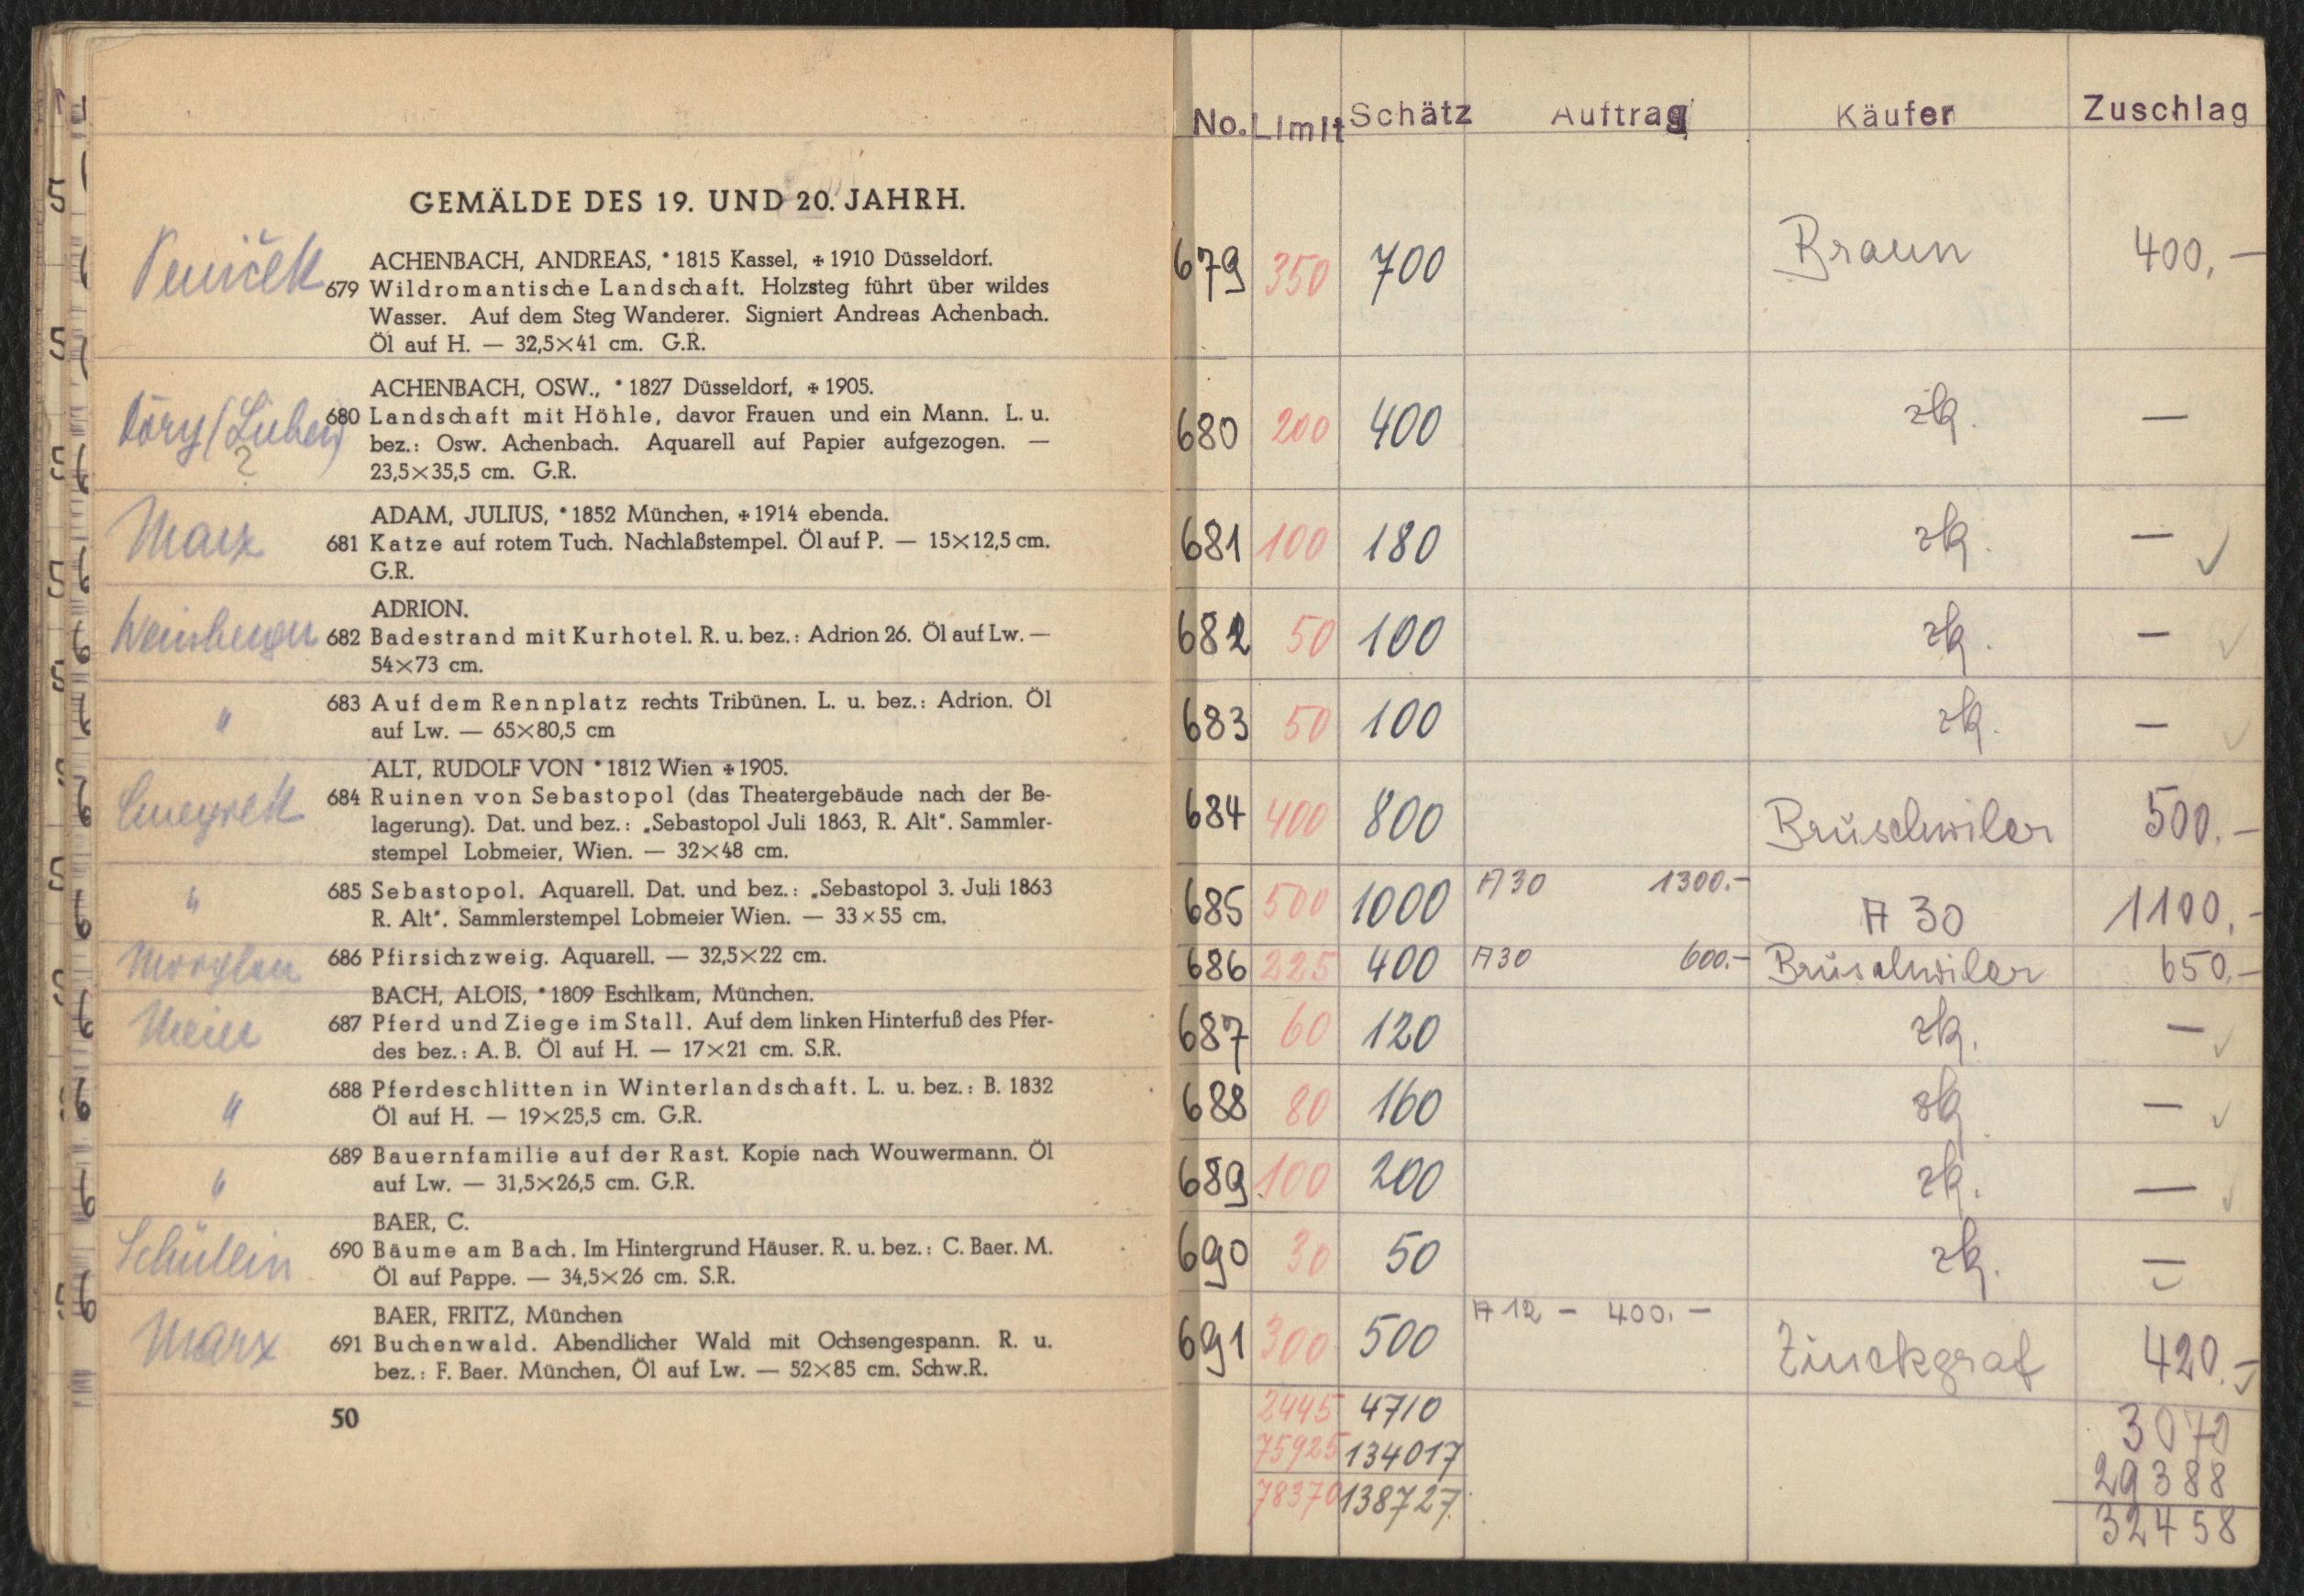 GEMÄLDE DES 19. UND 20. JAHRH.
ACHENBACH, ANDREAS, * 1815 Kassel, ✠ 1910 Düsseldorf.
679 Wildromantische Landschaft. Holzsteg führt über wildes
Wasser. Auf dem Steg Wanderer. Signiert Andreas Achenbach.
Öl auf H. — 32,5×41 cm. G.R.
ACHENBACH, OSW., * 1827 Düsseldorf, ✠ 1905.
680 Landschaft mit Höhle, davor Frauen und ein Mann. L. u.
bez.: Osw. Achenbach. Aquarell auf Papier aufgezogen. —
23,5×35,5 cm. G.R.
Marx
ADAM, JULIUS, * 1852 München, ✠ 1914 ebenda.
681 Katze auf rotem Tuch. Nachlaßstempel. Öl auf P. — 15×12,5 cm.
G.R.
Weinberger
ADRION.
682 Badestrand mit Kurhotel. R. u. bez.: Adrion 26. Öl auf Lw. —
54×73 cm.
"
683 Auf dem Rennplatz rechts Tribünen. L. u. bez.: Adrion. Öl
auf Lw. — 65×80,5 cm
ALT, RUDOLF VON * 1812 Wien ✠ 1905.
684 Ruinen von Sebastopol (das Theatergebäude nach der Be-
lagerung). Dat. und bez.: „Sebastopol Juli 1863, R. Alt". Sammler-
stempel Lobmeier, Wien. — 32×48 cm.
"
685 Sebastopol. Aquarell. Dat. und bez.: „Sebastopol 3. Juli 1863
R. Alt". Sammlerstempel Lobmeier Wien. — 33×55 cm.
686 Pfirsichzweig. Aquarell. — 32,5×22 cm.
BACH, ALOIS, * 1809 Eschlkam, München.
687 Pferd und Ziege im Stall. Auf dem linken Hinterfuß des Pfer-
des bez.: A. B. Öl auf H. — 17×21 cm. S.R.
"
688 Pferdeschlitten in Winterlandschaft. L. u. bez.: B. 1832
Öl auf H. — 19×25,5 cm. G.R.
"
689 Bauernfamilie auf der Rast. Kopie nach Wouwermann. Öl
auf Lw. — 31,5×26,5 cm. G.R.
Schülein
BAER, C.
690 Bäume am Bach. Im Hintergrund Häuser. R. u. bez.: C. Baer. M.
Öl auf Pappe. — 34,5×26 cm. S.R.
Marx
BAER, FRITZ, München
691 Buchenwald. Abendlicher Wald mit Ochsengespann. R. u.
bez.: F. Baer. München, Öl auf Lw. — 52×85 cm. Schw.R.
50
No. Limit Schätz Auftrag Käufer Zuschlag
679 350 700 Braun 400,—
680 200 400 zk. —
681 100 180 zk. — ✓
682 50 100 zk. — ✓
683 50 100 zk. — ✓
684 400 800 Brüschwiler 500.—
685 500 1000 A 30 1300.— A 30 1100.—
686 225 400 A 30 600.— Brüschwiler 650,—
687 60 120 zk. — ✓
688 80 160 zk — ✓
689 100 200 zk. — ✓
690 30 50 zk. —
691 300 500 A 12 – 400.— Zinckgraf 420.— ✓
2445 4710 3070
75925 134017 29388
78370 138727. 32458